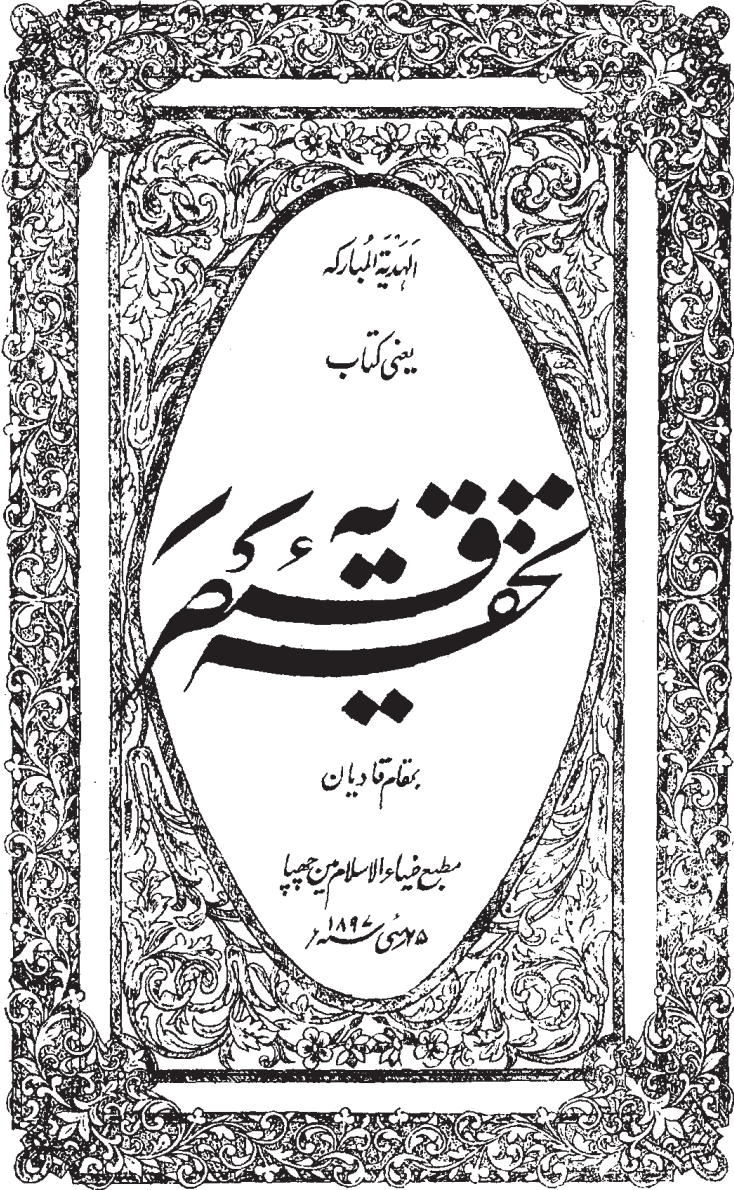 اَلْهَدْيَةُ الْمُبارکه
یعنی کتاب
تحفۂ قیصریہ
بمقام قادیان
مطبع ضیاء الاسلام مین چھپا
۲۵ مئی سنہ ۱۸۹۷ء